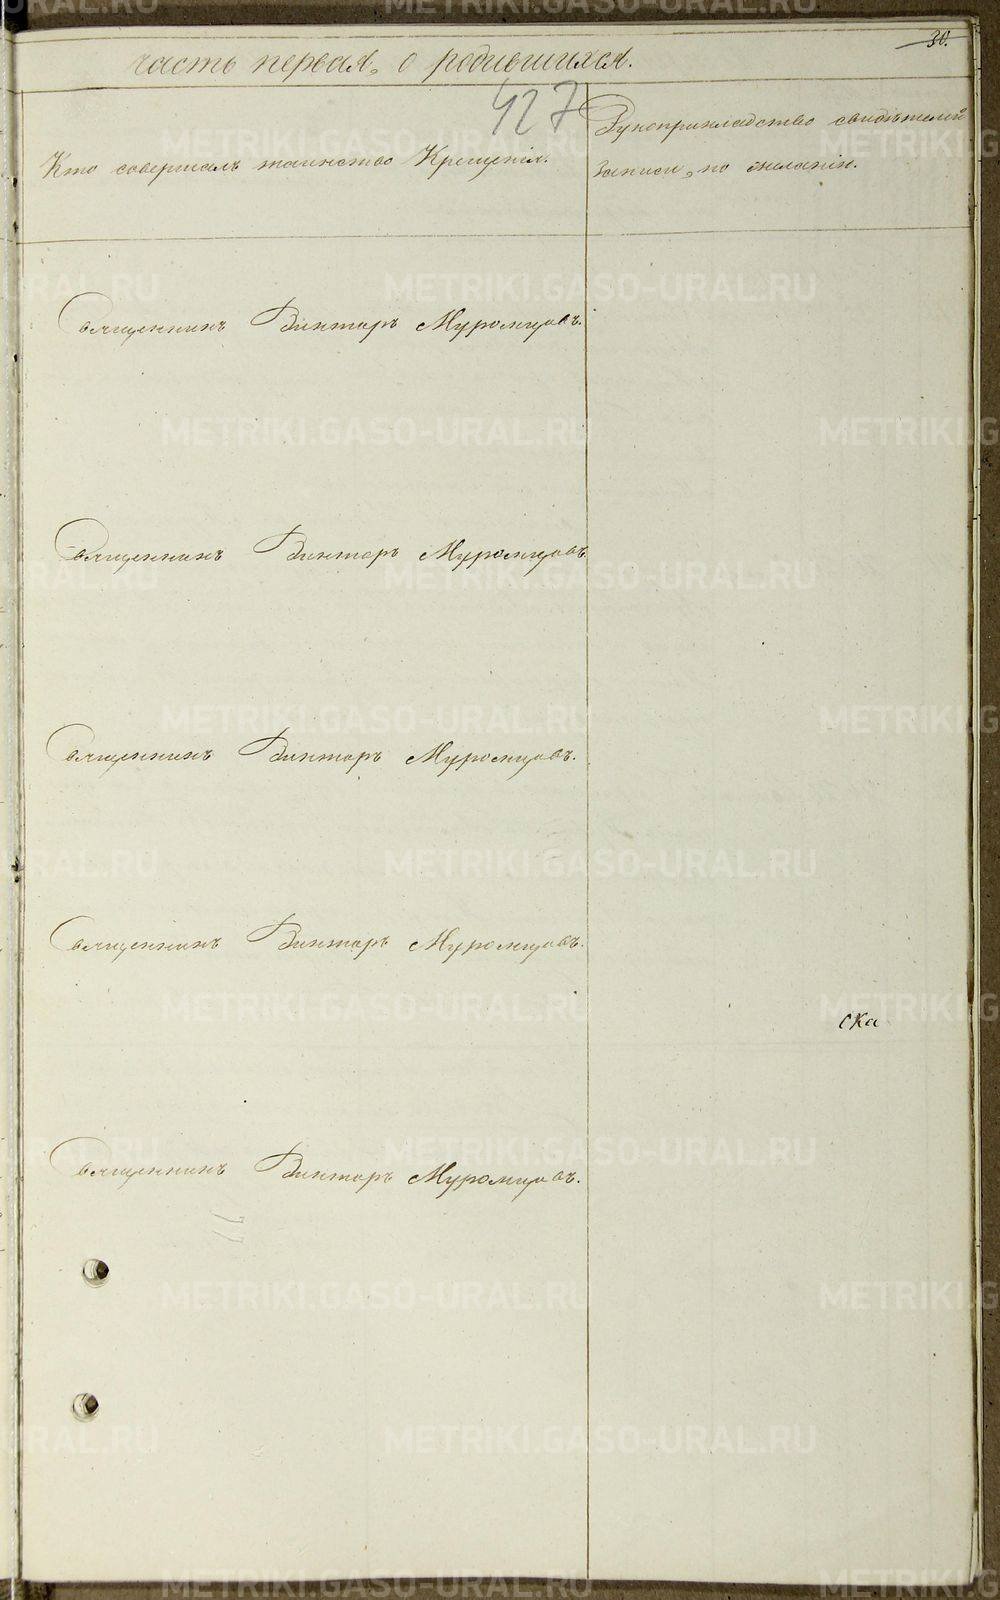 30.
часть первая, о родившихся.
427
Кто совершалъ таинство Крещенія.
Рукоприкладство свидѣтелей
записи, по желанію.
Священникъ Викторъ Муромцовъ.
Священникъ Викторъ Муромцовъ.
Священникъ Викторъ Муромцовъ.
Священникъ Викторъ Муромцовъ.
ска
Священникъ Викторъ Муромцовъ.
METRIKI.GASO-URAL.RU